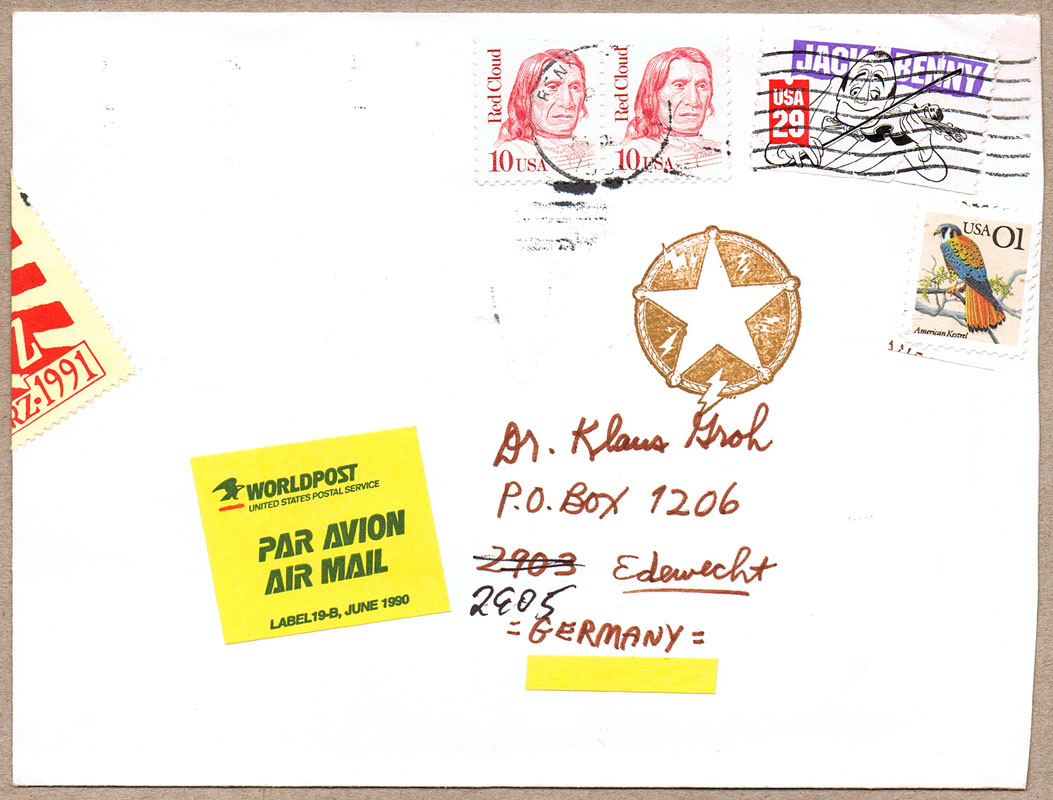 Red Cloud
10 USA
Red Cloud
10 USA
JACK BENNY
USA
29
USA 01
American Kestrel
RZ·1991
WORLDPOST
UNITED STATES POSTAL SERVICE
PAR AVION
AIR MAIL
LABEL 19-B, JUNE 1990
Dr. Klaus Groh
P.O. BOX 1206
2903 Edewecht
2905
= GERMANY =